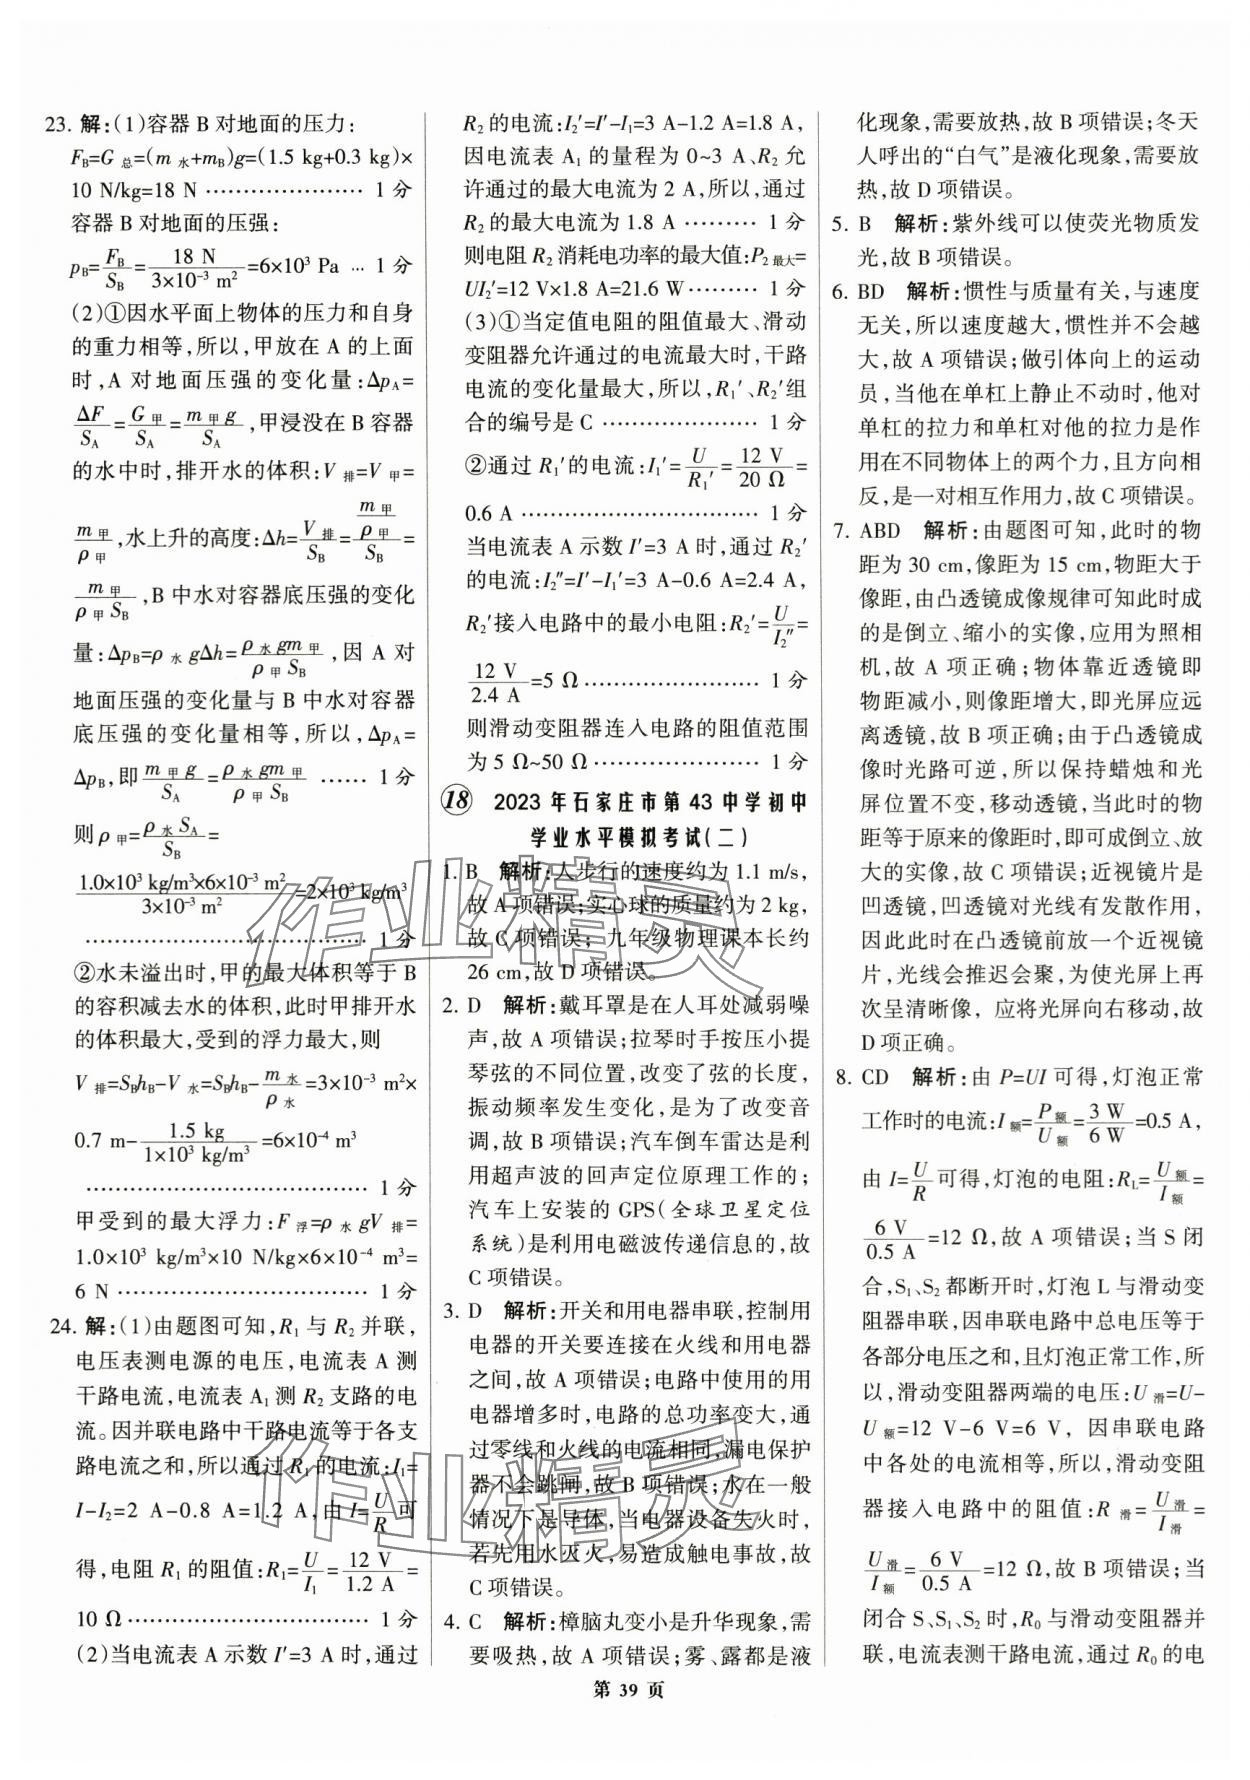 23. 解:(1)容器 B 对地面的压力:
F_B=G_总=(m_水+m_B)g=(1.5 kg+0.3 kg)×
10 N/kg=18 N ………………… 1 分
容器 B 对地面的压强:
p_B=F_B/S_B=18 N/(3×10⁻³ m²)=6×10³ Pa … 1 分
(2)①因水平面上物体的压力和自身
的重力相等,所以,甲放在 A 的上面
时,A 对地面压强的变化量:Δp_A=
ΔF/S_A=G_甲/S_A=m_甲g/S_A,甲浸没在 B 容器
的水中时,排开水的体积:V_排=V_甲=
m_甲/ρ_甲,水上升的高度:Δh=V_排/S_B=(m_甲/ρ_甲)/S_B=
m_甲/(ρ_甲S_B),B 中水对容器底压强的变化
量:Δp_B=ρ_水gΔh=ρ_水gm_甲/(ρ_甲S_B),因 A 对
地面压强的变化量与 B 中水对容器
底压强的变化量相等,所以,Δp_A=
Δp_B,即m_甲g/S_A=ρ_水gm_甲/(ρ_甲S_B) …… 1 分
则ρ_甲=ρ_水S_A/S_B=
1.0×10³ kg/m³×6×10⁻³ m²/(3×10⁻³ m²)=2×10³ kg/m³
……………………………… 1 分
②水未溢出时,甲的最大体积等于 B
的容积减去水的体积,此时甲排开水
的体积最大,受到的浮力最大,则
V_排=S_Bh_B-V_水=S_Bh_B-m_水/ρ_水=3×10⁻³ m²×
0.7 m-1.5 kg/(1×10³ kg/m³)=6×10⁻⁴ m³
……………………………… 1 分
甲受到的最大浮力:F_浮=ρ_水gV_排=
1.0×10³ kg/m³×10 N/kg×6×10⁻⁴ m³=
6 N …………………………… 1 分
24. 解:(1)由题图可知,R₁ 与 R₂ 并联,
电压表测电源的电压,电流表 A 测
干路电流,电流表 A₁ 测 R₂ 支路的电
流。因并联电路中干路电流等于各支
路电流之和,所以通过 R₁ 的电流:I₁=
I-I₂=2 A-0.8 A=1.2 A,由 I=U/R可
得,电阻 R₁ 的阻值:R₁=U/I₁=12 V/1.2 A=
10 Ω ………………………… 1 分
(2)当电流表 A 示数 I′=3 A 时,通过
R₂ 的电流:I₂′=I′-I₁=3 A-1.2 A=1.8 A,
因电流表 A₁ 的量程为 0~3 A、R₂ 允
许通过的最大电流为 2 A,所以,通过
R₂ 的最大电流为 1.8 A ……… 1 分
则电阻 R₂ 消耗电功率的最大值:P₂最大=
UI₂′=12 V×1.8 A=21.6 W……… 1 分
(3)①当定值电阻的阻值最大、滑动
变阻器允许通过的电流最大时,干路
电流的变化量最大,所以,R₁′、R₂′组
合的编号是 C ………………… 1 分
②通过 R₁′的电流:I₁′=U/R₁′=12 V/20 Ω=
0.6 A ………………………… 1 分
当电流表 A 示数 I′=3 A 时,通过 R₂′
的电流:I₂″=I′-I₁′=3 A-0.6 A=2.4 A,
R₂′接入电路中的最小电阻:R₂′=U/I₂″=
12 V/2.4 A=5 Ω ………………… 1 分
则滑动变阻器连入电路的阻值范围
为 5 Ω~50 Ω ………………… 1 分
18 2023 年石家庄市第 43 中学初中
学业水平模拟考试(二)
1. B 解析:人步行的速度约为 1.1 m/s,
故 A 项错误;实心球的质量约为 2 kg,
故 C 项错误;九年级物理课本长约
26 cm,故 D 项错误。
2. D 解析:戴耳罩是在人耳处减弱噪
声,故 A 项错误;拉琴时手按压小提
琴弦的不同位置,改变了弦的长度,
振动频率发生变化,是为了改变音
调,故 B 项错误;汽车倒车雷达是利
用超声波的回声定位原理工作的;
汽车上安装的 GPS(全球卫星定位
系统)是利用电磁波传递信息的,故
C 项错误。
3. D 解析:开关和用电器串联,控制用
电器的开关要连接在火线和用电器
之间,故 A 项错误;电路中使用的用
电器增多时,电路的总功率变大,通
过零线和火线的电流相同,漏电保护
器不会跳闸,故 B 项错误;水在一般
情况下是导体,当电器设备失火时,
若先用水灭火,易造成触电事故,故
C 项错误。
4. C 解析:樟脑丸变小是升华现象,需
要吸热,故 A 项错误;雾、露都是液
化现象,需要放热,故 B 项错误;冬天
人呼出的“白气”是液化现象,需要放
热,故 D 项错误。
5. B 解析:紫外线可以使荧光物质发
光,故 B 项错误。
6. BD 解析:惯性与质量有关,与速度
无关,所以速度越大,惯性并不会越
大,故 A 项错误;做引体向上的运动
员,当他在单杠上静止不动时,他对
单杠的拉力和单杠对他的拉力是作
用在不同物体上的两个力,且方向相
反,是一对相互作用力,故 C 项错误。
7. ABD 解析:由题图可知,此时的物
距为 30 cm,像距为 15 cm,物距大于
像距,由凸透镜成像规律可知此时成
的是倒立、缩小的实像,应用为照相
机,故 A 项正确;物体靠近透镜即
物距减小,则像距增大,即光屏应远
离透镜,故 B 项正确;由于凸透镜成
像时光路可逆,所以保持蜡烛和光
屏位置不变,移动透镜,当透镜的物
距等于原来的像距时,即可成倒立、放
大的实像,故 C 项错误;近视镜片是
凹透镜,凹透镜对光线有发散作用,
因此此时在凸透镜前放一个近视镜
片,光线会推迟会聚,为使光屏上再
次呈清晰像, 应将光屏向右移动,故
D 项正确。
8. CD 解析:由 P=UI 可得,灯泡正常
工作时的电流:I_额=P_额/U_额=3 W/6 W=0.5 A,
由 I=U/R可得,灯泡的电阻:R_L=U_额/I_额=
6 V/0.5 A=12 Ω,故 A 项错误;当 S 闭
合,S₁、S₂ 都断开时,灯泡 L 与滑动变
阻器串联,因串联电路中总电压等于
各部分电压之和,且灯泡正常工作,所
以,滑动变阻器两端的电压:U_滑=U-
U_额=12 V-6 V=6 V, 因串联电路
中各处的电流相等,所以,滑动变阻
器接入电路中的阻值:R_滑=U_滑/I_滑=
U_滑/I_额=6 V/0.5 A=12 Ω,故 B 项错误;当
闭合 S、S₁、S₂ 时,R₀ 与滑动变阻器并
联,电流表测干路电流,通过 R₀ 的电
第 39 页
作业精灵
作业精灵